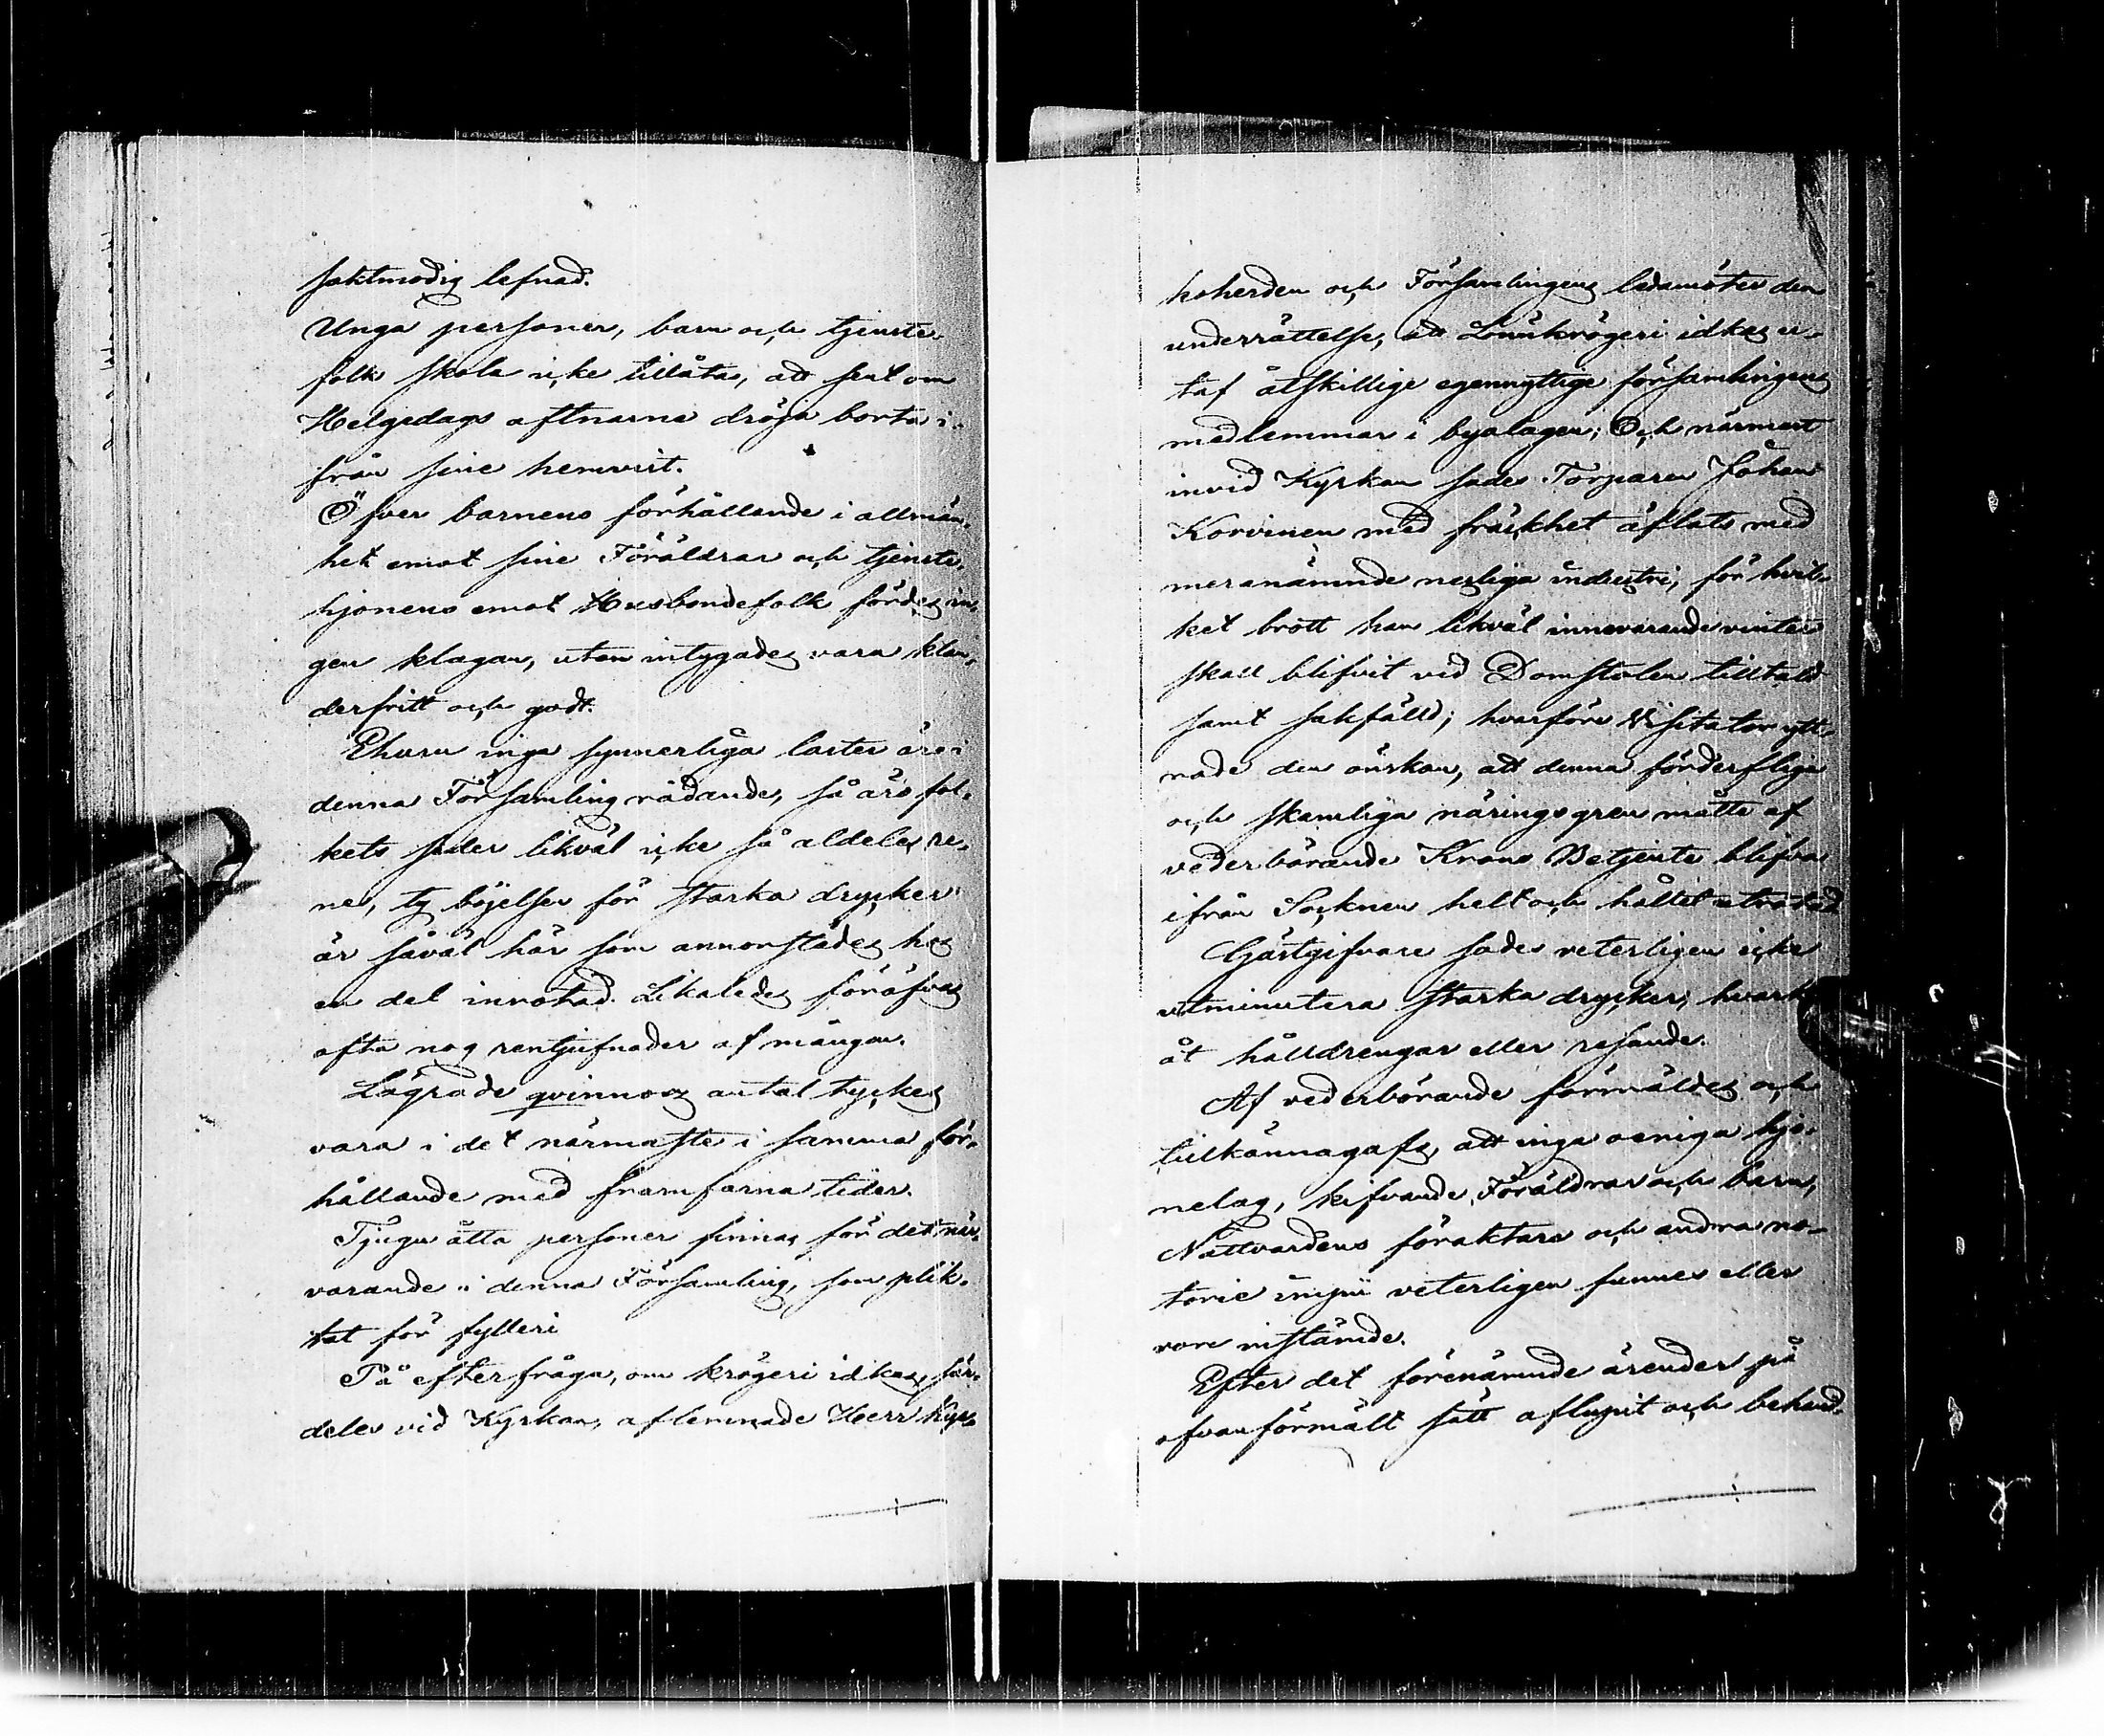 saktmodig lefnad.
Unga personer, barn och tjenste-
folk skola icke tillåtas, att sent om
Helgedags aftnarna dröja borta i-
från sine hemvist.
Öfver barnens förhållande i allmän-
het emot sine Föräldrar och tjenste-
hjonens emot Husbondefolk fördes in-
gen klagan, utan intygades vara klan-
derfritt och godt.
Ehuru inga synnerliga laster äro i
denna Församling rådande, så äro fol-
kets seder likväl icke så aldeles re-
ne, ty böjelsen för starka drycker
är såväl här som annorstädes hos
en del inrotad. Likaledes föröfvas
ofta nog rentjufnader af mången.
Lägrade qvinnors antal tyckes
vara i det närmaste i samma för-
hållande med framfarna tider.
Tjugu åtta personer finnas för det när-
varande i denna Församling, som plik-
tat för fylleri
På efterfråga, om krögeri idkas, sär-
deles vid Kyrkan, aflemnade Herr Kyr-
koherden och Församlingens ledamöter den
underrättelse, att Lönnkrögeri idkas u-
taf åtskillige egennyttige församlingens
medlemmar i byalagen; Och närmast
invid Kyrkan sades Torparen Johan
Korvinen med fräckhet äflats med
meranämnde nesliga industri, för hvil-
ket brott han likväl innevarande vinter
skall blifvit vid Domstolen tilltald
samt sakfälld; hvarföre Visitator ytt-
rade den önskan, att denna förderfliga
och skamliga näringsgren måtte af
vederbörande Krono Betjente blifva
ifrån Socknen helt och hållet utrotad
Gästgifvare sades veterligen icke
utminutera starka drycker, hvark
åt hålldrengar eller resande.
Af vederbörande förmäldes och
tillkännagafs, att inga oeniga hjo-
nelag, kifvande Föräldrar och barn,
Nattvardens föraktare och andra no-
torie veterligen funnes eller
vore instämde.
Efter det förenämnde ärender på
ofvanförmält sätt aflupit och behand-